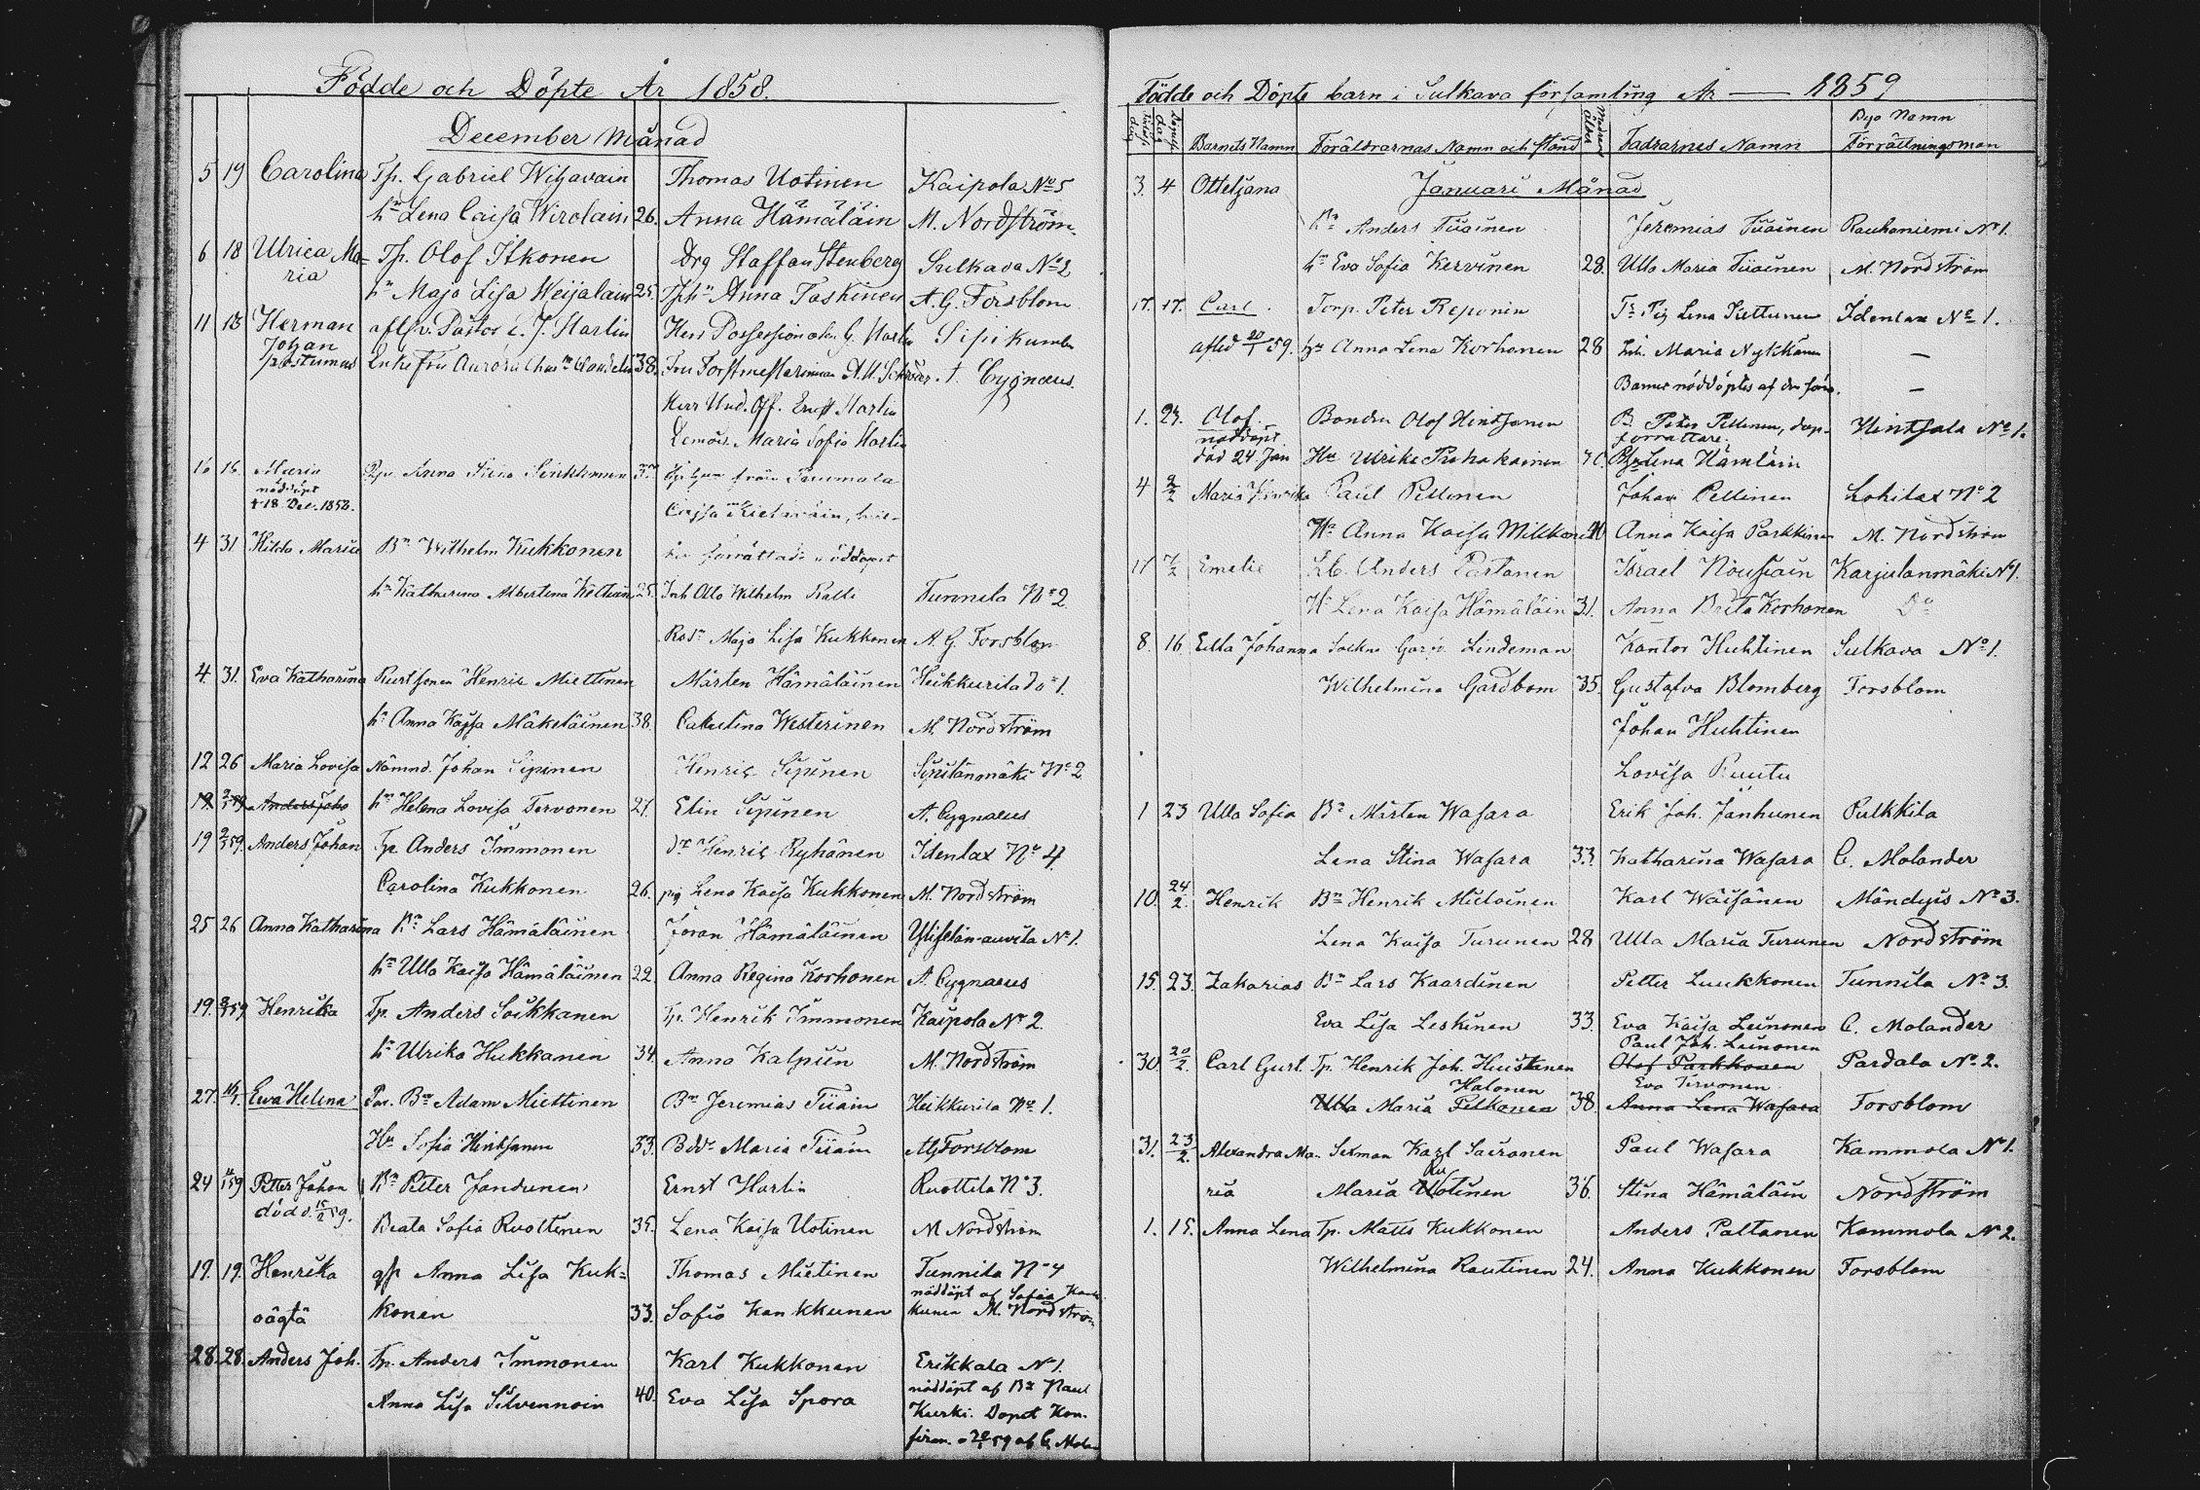 Födde och Döpte År 1858.
December Månad
5 19 Carolina Tp. Gabriel Witjavain Thomas Uotinen Kaipola No 5
hu Lena Caisa Wirolain 26. Anna Hämäläin M. Nordström.
6 18 Ulrica Ma= Tp. Olof Itkonen Drg Staffan Stenberg Sulkava No 2
ria hu Maja Lisa Weijalain 25. Anna Taskinen A. G. Forsblom
11 18 Herman J. Hartin G. Sipikumbu
Johan
postumus Enkefru Aurora 38. Fru Forstmestarinnan Cygnæus.
Herr Und. Off. Ernst Hartin
Demois. Maria Sofia Hartin
16 16. Maria Anna Stina 37
nöddöpt från Pummala
† 18 Dec. 1858. Cajsa
4 31 Hilda Maria Bn Wilhelm Kukkonen förrättade nöddopet
hu Katharina Albertina 25. Inh Otto Wilhelm Ralli Tunnila No 2
Maja Lisa Kukkonen A. G. Forsblom
4. 31. Eva Katharina Henric Miettinen Mårten Hämäläinen Heikkurila No 1.
hu Anna Kajsa Mäkeläinen 38. Westerinen M. Nordström
12 26 Maria Lovisa Nämnd. Johan Sipinen Henric Sipinen Sipilänmäki No 2
Anders Joha hu Helena Lovisa Tervonen 27. Elin Sipinen A. Cygnaeus
19 2/1 59. Anders Johan Tp. Anders Immonen Dr Henric Ryhänen Idenlax No 4.
Carolina Kukkonen 26. pig Lena Kaisa Kukkonen M. Nordström
25 26 Anna Katharina Bn Lars Hämäläinen Jöran Hämäläinen No 1.
hu Ulla Kaisa Hämäläinen 22. Anna Regina Korhonen A. Cygnaeus
19. 59 Henrika Tp. Anders Soikkanen Tp. Henrik Immonen Kaipola No 2.
hu Ulrika Hukkanen 34. Anna Kalpiin M. Nordström
27. Eva Helena Bn Adam Miettinen Bn Jeremias Tiiain Heikkurila No 1.
Hu Sofia Hintsanen 33. Maria Tiiain AGForsblom
24 59 Petter Johan Bn Petter Janhunen Ernst Hartin Ruottila No 3.
död d. 15/2 59. Beata Sofia Ruottinen 35. Lena Kaisa Uotinen M Nordström
19. 19. Henrika Anna Lisa Kuk= Thomas Mietinen Tunnila No 4
nöddöpt af Sofia
oägta konen 33. Sofia Kankkunen kunen M. Nordström
28. 28. Anders Joh. Tp. Anders Immonen Karl Kukkonen Erikkala No 1.
Anna Lisa Silvennoin 40. Eva Lisa Spora nöddöpt af Bn Paul
Kurki. Dopet Kon-
firm. 59 af C. Molan
Födde och Döpte barn i Sulkava församling År — 1859
Barnets Namn Föräldrarnas Namn och stånd Moders ålder Faddrarnes Namn Bys Namn
Förrättningsman
3. 4 Ottetjana Januari Månad
Bn Anders Tiiainen Jeremias Tiiainen Rauhaniemi No 1.
hu Eva Sofia Kervinen 28. Ulla Maria Tiiainen M. Nordström
17. 17. Carl. Torp. Peter Reponen Pig Lena Piettunen Idenlax No 1.
afled 20/1 59. hu Anna Lena Korhonen 28 Inh. Maria Nykkänen —
Barnet nöddöptes af den förra. —
1. 24. Olof Bonden Olof Hintsanen Bn Peter Pellinen, dop- Hintsala No 1.
nöddöpt förrättare.
död 24 Jan Hu Ulrika 40. Lena Hämläin
4 2/2 Maria Hinrika Paul Pellinen Johan Pellinen Lohilax No 2
Hu Anna Kaisa Milkkonen 40 Anna Kaisa Parkkinen M. Nordström
11 7/2 Emelie Anders Partanen Israel Nousiain Karjulanmäki No 1.
Hu Lena Kaisa Hämäläin 31. Anna Brita Korhonen Do
8. 16. Edla Johanna Sockne Garv. Lindeman Kantor Huhtinen Sulkava No 1.
Wilhelmina Gardbom 35. Gustafva Blomberg Forsblom
Johan Huhtinen
Lovisa Ruutu
1 23 Ulla Sofia Bn Mårten Wasara Erik Joh. Janhunen Pulkkila
Lena Stina Wasara 33. Katharina Wasara C. Molander
10. 24/2. Henrik Bn Henrik Karl Wäisänen No 3.
Lena Kaisa Turunen 28 Ulla Maria Turunen Nordström
15. 23. Zakarias Bn Lars Kaardinen Petter Luukkonen Tunnila No 3.
Eva Lisa Leskinen 33. Eva Kaisa Leinonen C. Molander
Paul Joh. Leinonen
30. 20/2. Carl Gust. Tp. Henrik Joh. Huistanen Olof Parkkonen Pardala No 2.
Halonen Eva Tervonen
Ulla Maria Pelkonen 38. Anna Lena Wasara Forsblom
31. 23/2. Alexandra Ma- Sexman Karl Sairanen Paul Wasara Kammola No 1.
ria Maria Uotinen 36. Stina Hämäläin Nordström
1. 15. Anna Lena Tp. Matts Kukkonen Anders Paltanen Kammola No 2.
Wilhelmina Rautinen 24. Anna Kukkonen Forsblom